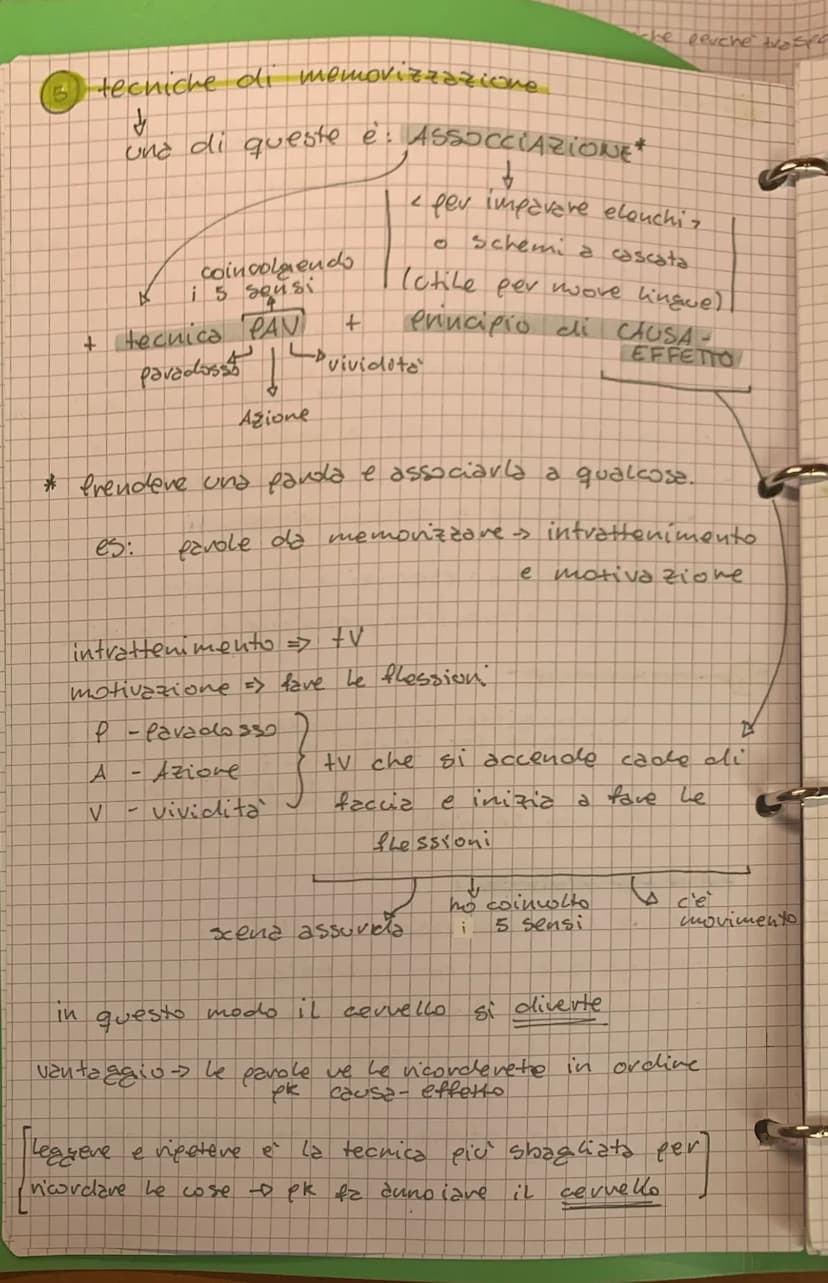 che perché
5 tecniche di memorizzazione
una di queste è: ASSOCCIAZIONE*
< per imparare elenchi >
o schemi a cascata
(utile per nuove lingue)
coinvolgendo
i 5 sensi
+ tecnica PAV + principio di CAUSA-
EFFETTO
paradosso
vividità
Azione
* Prendere una parola e associarla a qualcosa.
es: parole da memorizzare → intrattenimento
e motivazione
intrattenimento => tV
motivazione => fare le flessioni
P - Paradosso
A - Azione
V - vividità
tV che si accende cade di
faccia e inizia a fare le
flessioni
scena assurda
ho coinvolto
i 5 sensi
c'è
movimento
in questo modo il cervello si diverte
vantaggio → le parole ve le ricorderete in ordine
pk causa-effetto
[leggere e ripetere è la tecnica più sbagliata per
ricordare le cose → pk fa annoiare il cervello]